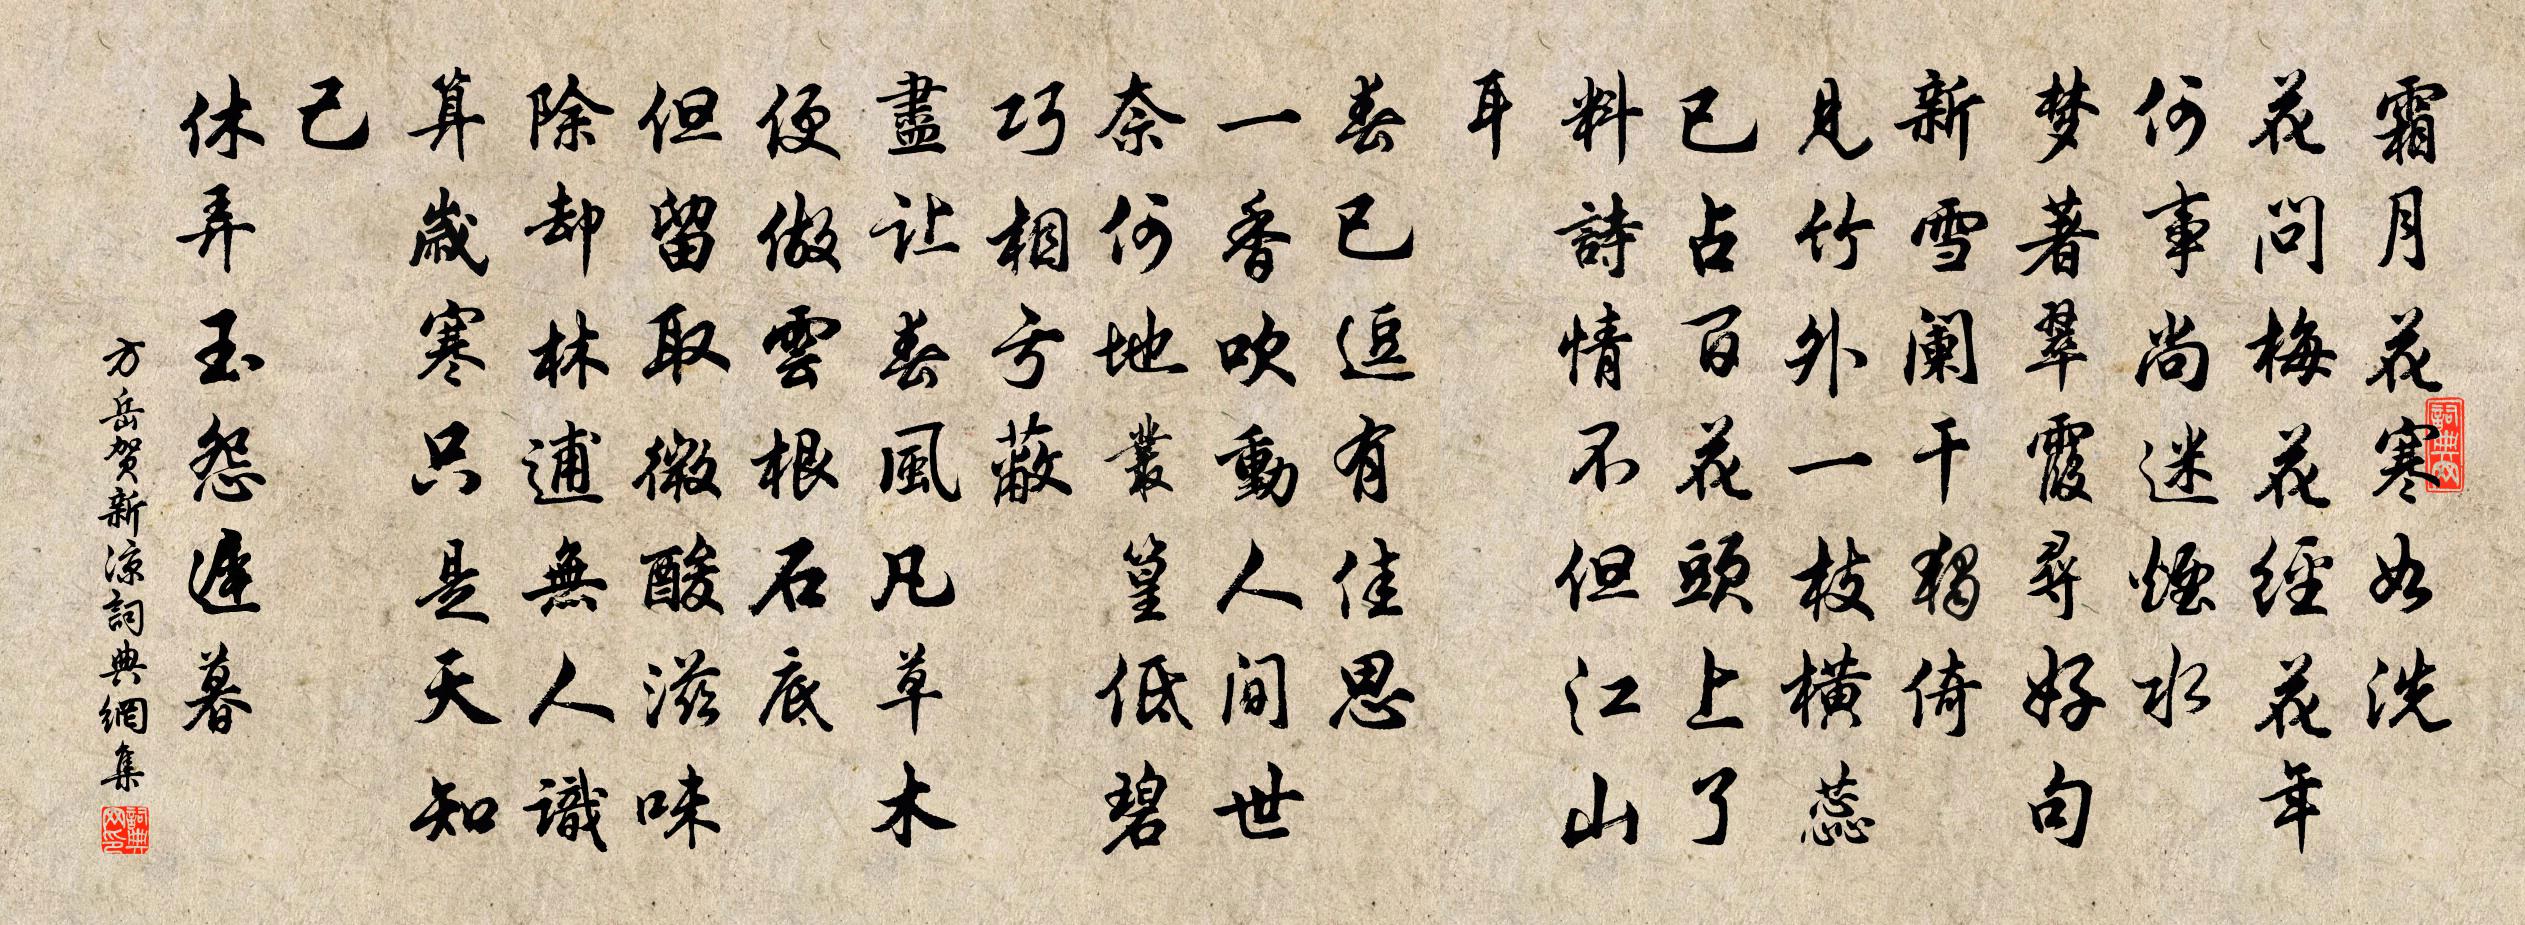 霜月花寒如洗
花问梅花經花年
何事尚迷煙水
梦著翠霞尋好句
新雪阑干独倚
見竹外一枝横蕊
已占百花頭上了
料詩情不但江山
耳
春已逗有佳思
一香吹動人间世
奈何地叢篁低碧
巧相亏蔽
盡让春風凡草木
便做雲根石底
但留取微酸滋味
除却林逋無人識
算歲寒只是天知
己
休弄玉怨遲暮
方岳賀新凉詞典網集
詞典网
詞典网印